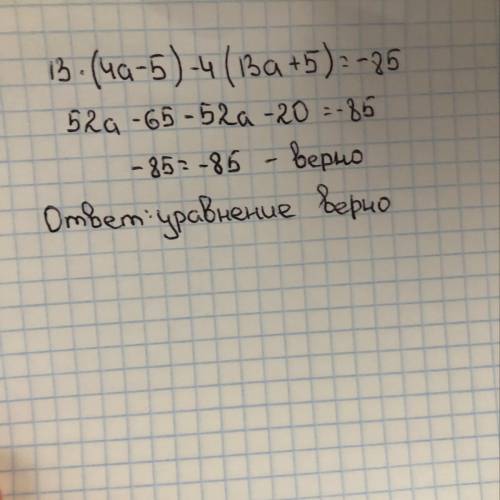 13·(4a-5)-4(13a+5)=-85
52a-65-52a-20=-85
-85=-85 - верно
Ответ: уравнение верно